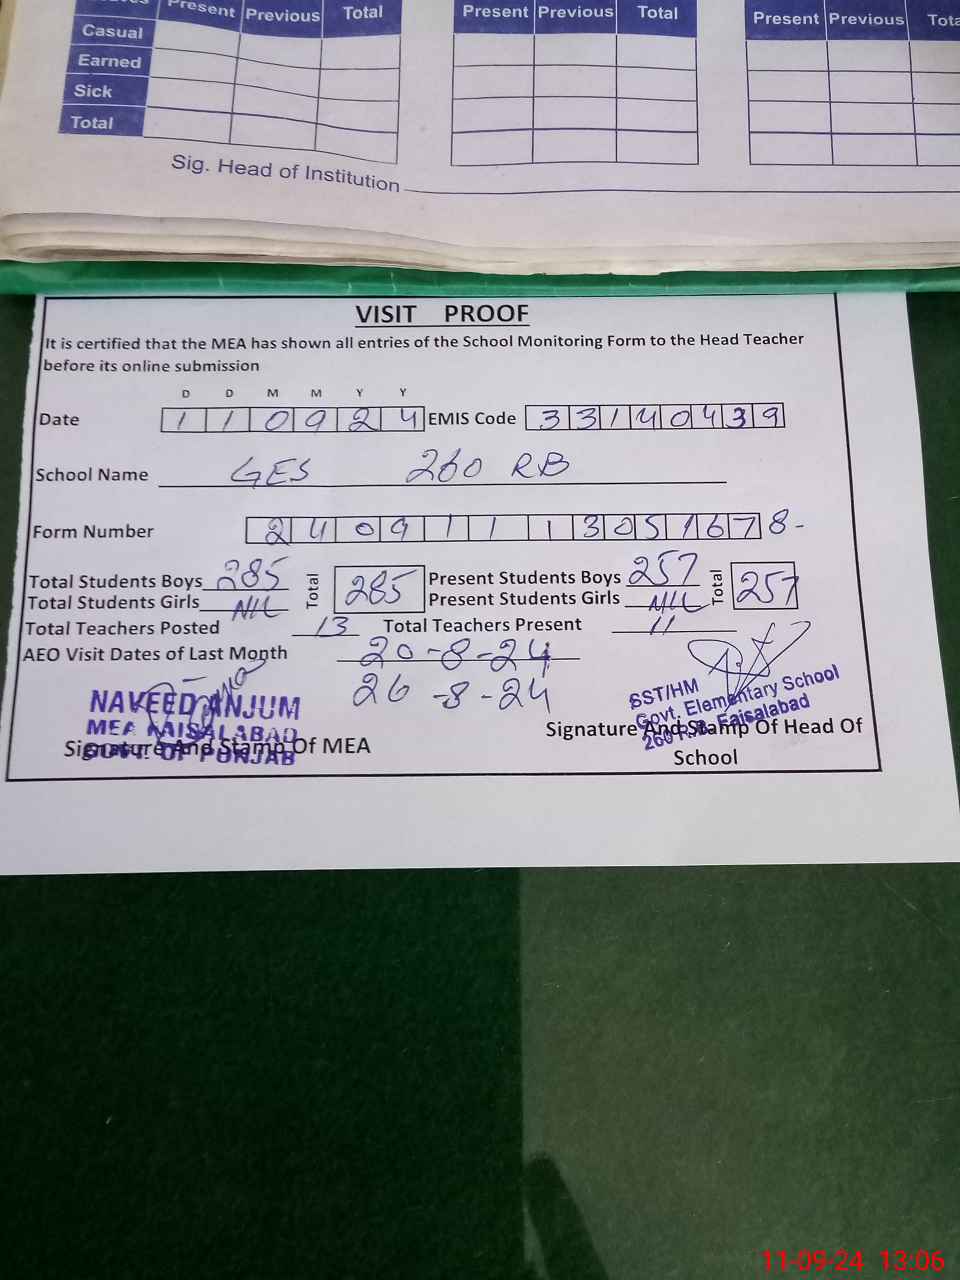 Present Previous Total Present Previous Total Present Previous
Casual
Earned
Sick
Total
Sig. Head of Institution
VISIT PROOF
It is certified that the MEA has shown all entries of the School Monitoring Form to the Head Teacher
before its online submission
D D M M Y Y
Date 1 1 0 9 2 4 EMIS Code 3 3 1 4 0 4 3 9
School Name GES 260 RB
Form Number 2 4 0 9 1 1 1 3 0 5 1 6 7 8-
Total Students Boys 285 Total 285 Present Students Boys 257 Total 257
Total Students Girls NIL Present Students Girls NIL
Total Teachers Posted 13 Total Teachers Present 11
AEO Visit Dates of Last Month 20-8-24
26-8-24
NAVEED ANJUM
MEA FAISALABAD
GOVT. OF PUNJAB
Signature And Stamp Of MEA
SST/HM
Govt. Elementary School
260 R.B. Faisalabad
Signature And Stamp Of Head Of
School
11-09-24 13:06